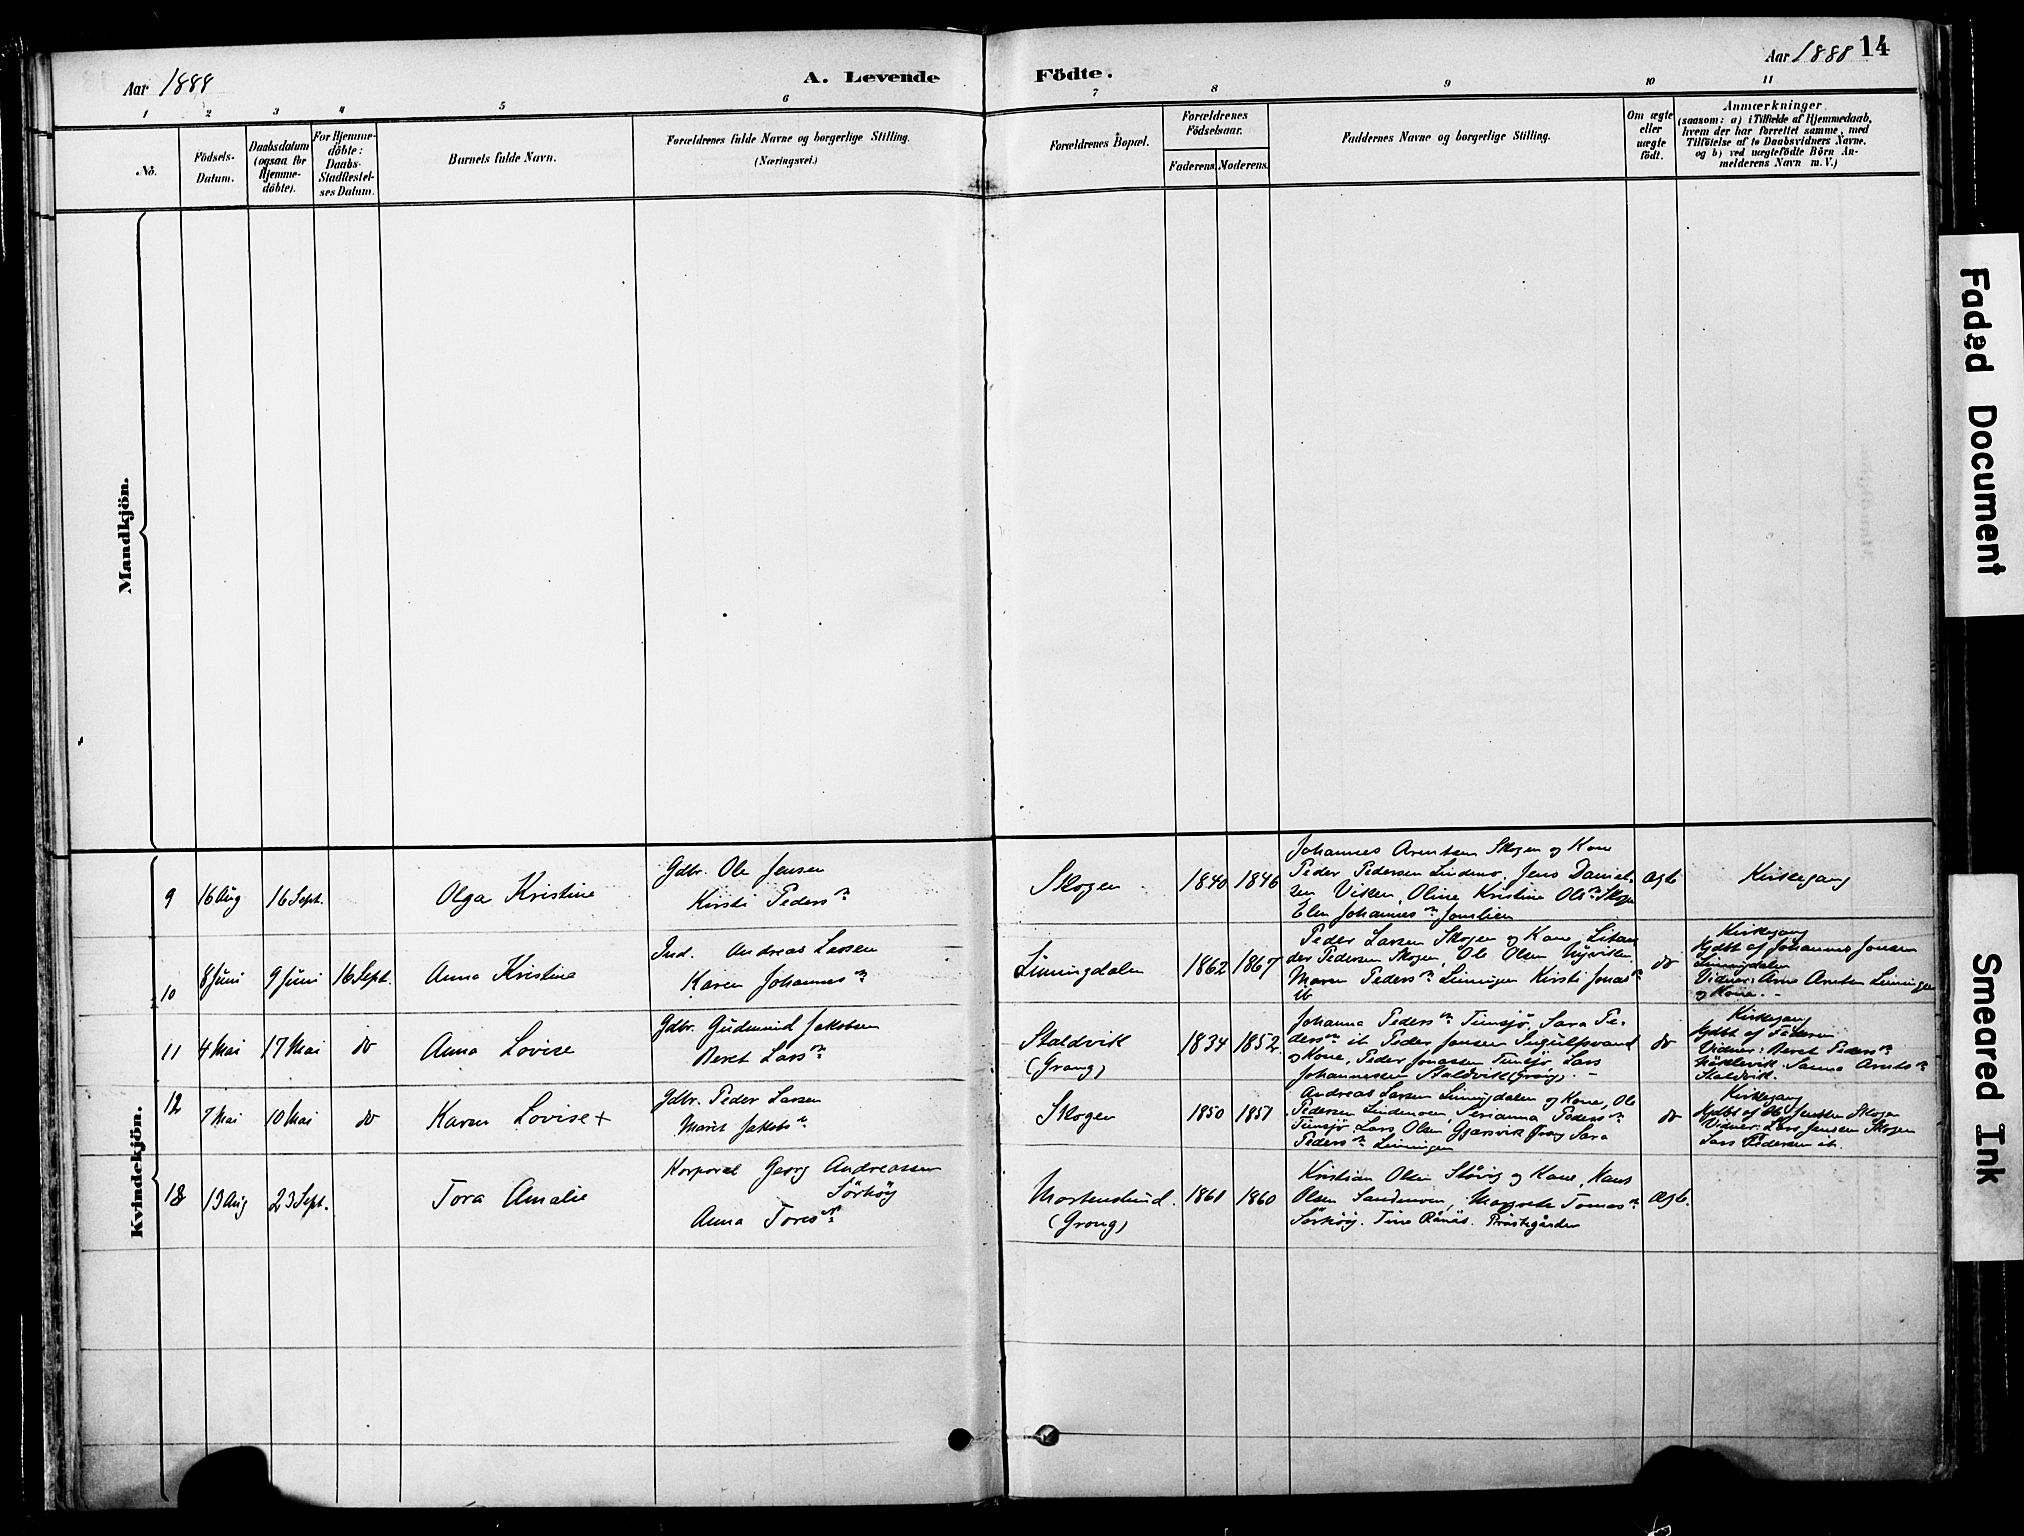 Aar 1888
A. Levende
Födte.
Aar 1888
14
1 2 3 4 5 6 7 8 9 10 11
No.
Födsels-
Datum.
Daabsdatum
(ogsaa for
Hjemme-
döbte).
For Hjemme-
döbte:
Daabs-
Stadfæstel-
ses Datum.
Barnets fulde Navn.
Forældrenes fulde Navne og borgerlige Stilling.
(Næringsvei.)
Forældrenes Bopæl.
Forældrenes
Födselsaar.
Faderens.
Moderens.
Faddernes Navne og borgerlige Stilling.
Om ægte
eller
uægte
födt.
Anmærkninger
(saasom: a) i Tilfælde af Hjemmedaab,
hvem der har forrettet samme, med
Tilföielse af to Daabsvidners Navne,
og b) ved uægtefödte Börn An-
melderens Navn m. V.)
Mandkjön.
Kvindekjön.
9
16 Aug
16 Sept.
Olga Kristine
Gdbr. Ole Jensen
Kirsti Pedersn
Skogen
1840
1846
Johannes Arentsen Skogen og Kone
Peder Pedersen Lindemo, Jens Daniel-
sen Viken, Oline Kristine Olsn Skogen
Elen Johannesn Jomlien
Ægte
Kirkegang
10
8 Juni
9 Juni
16 Sept.
Anna Kristine
Ind. Andreas Larsen
Karen Johannesn
Linningdalen
1862
1867
Peder Larsen Skogen og Kone,
der Pedersen Skogen, Ole Olsen Nyviken,
Maren Pedersn Linningen Kirsti Jonasn
ib
do
Kirkegang
Hjdbt af Johannes Jonsen
Linningdalen
Vidner: Arne Arntsen Linningen
og Kone. -
11
4 Mai
17 Mai
do
Anna Lovise
Gdbr. Gudmund Jakobsen
Beret Larsn
Staldvik
(Grong)
1834
1852
Johanna Pedersn Tunsjø, Sara Pe-
dersn ib Peder Jensen Ingulfsvand
og Kone, Peder Jonassen Tunsjø Lars
Johannessen Staldvik (Grong). -
do
Kirkegang
Hjdbt af Faderen
Vidner: Beret Pedersn
Sanna Arntsn
Staldvik.
12
7 Mai
10 Mai
do
Karen Lovise +
Gdbr. Peder Larsen
Maret Jakobsn
Skogen
1850
1851
Andreas Larsen Linningdalen og Kone, Ole
Pedersen Lindemoen, Serianna Pedersn
Tunsjø Lars Olsen Gjersvik Grong Sara
Pedersn Linningen
do
Kirkegang
Hjdbt af Ole Jensen Skogen
Vidner: Lars Jensen Skogen
Lars Pedersen ib.
13
13 Aug
23 Sept.
Tora Amalie
Korporal Georg Andreassen
Sörhöy
Anna Toresn
Mortenslund.
(Grong)
1861
1860
Kristian Olsen og Kone, Hans
Olsen Sandmoen, Margrete Tomasn
Sørhöy. Tine Rånäs. Prästegården
Ægte.
Faded Document
Smeared Ink